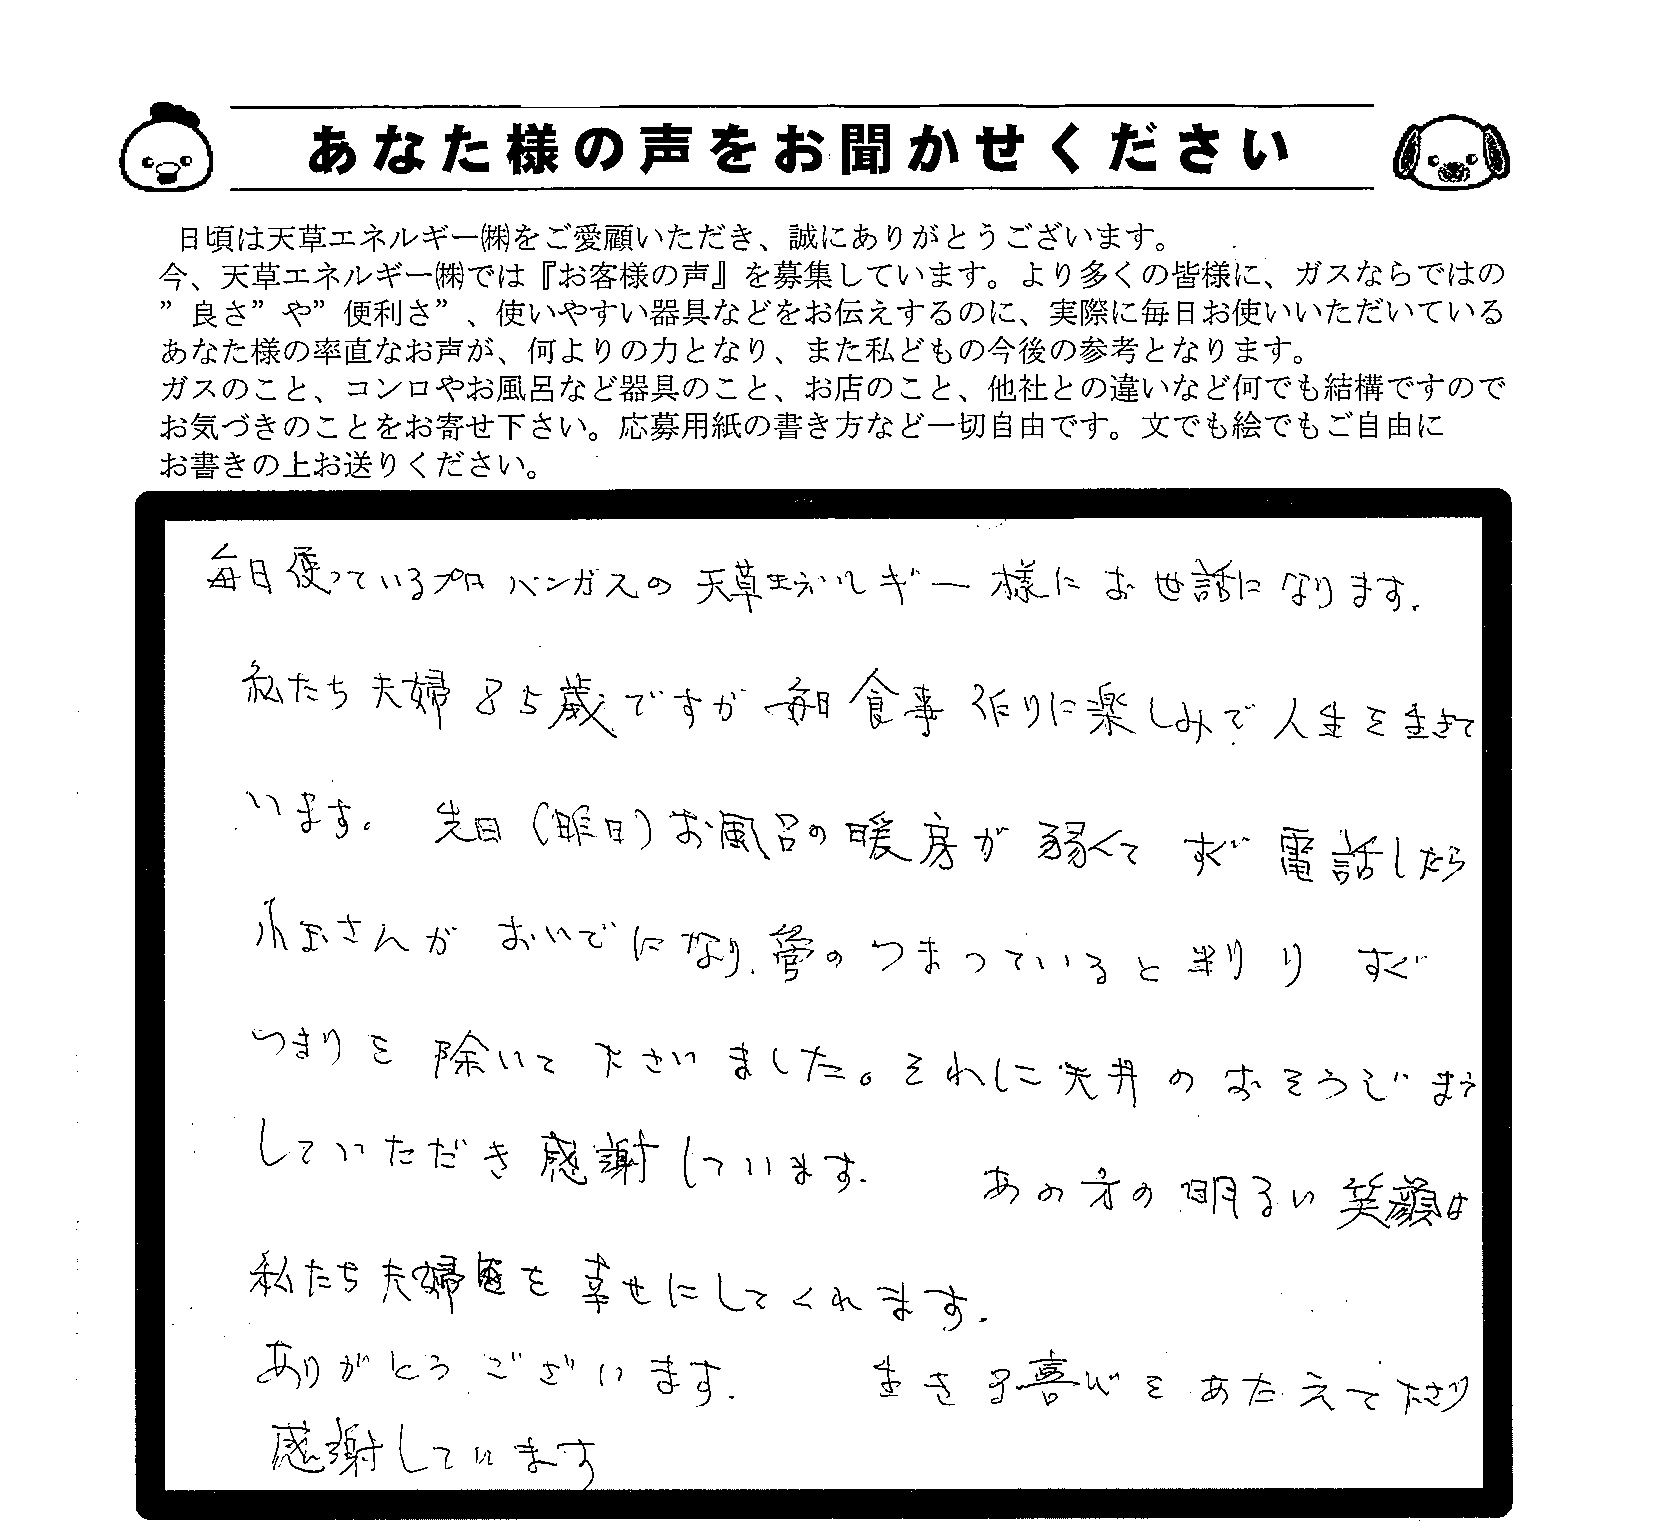 あなた様の声をお聞かせください
日頃は天草エネルギー㈱をご愛顧いただき、誠にありがとうございます。
今、天草エネルギー㈱では『お客様の声』を募集しています。より多くの皆様に、ガスならではの
”良さ”や”便利さ”、使いやすい器具などをお伝えするのに、実際に毎日お使いいただいている
あなた様の率直なお声が、何よりの力となり、また私どもの今後の参考となります。
ガスのこと、コンロやお風呂など器具のこと、お店のこと、他社との違いなど何でも結構ですので
お気づきのことをお寄せ下さい。応募用紙の書き方など一切自由です。文でも絵でもご自由に
お書きの上お送りください。
毎日使っているプロパンガスの天草エネルギー様にお世話になります.
私たち夫婦85歳ですが毎日食事作りに楽しみで人生を生きて
います。先日(昨日)お風呂の暖房が弱くてすぐ電話したら
小玉さんがおいでになり、管のつまっていると判りすぐ
つまりを除いて下さいました。それに天井のおそうじまで
していただき感謝しています. あの方の明るい笑顔は
私たち夫婦を幸せにしてくれます.
ありがとうございます. 生きる喜びをあたえて下さり
感謝しています